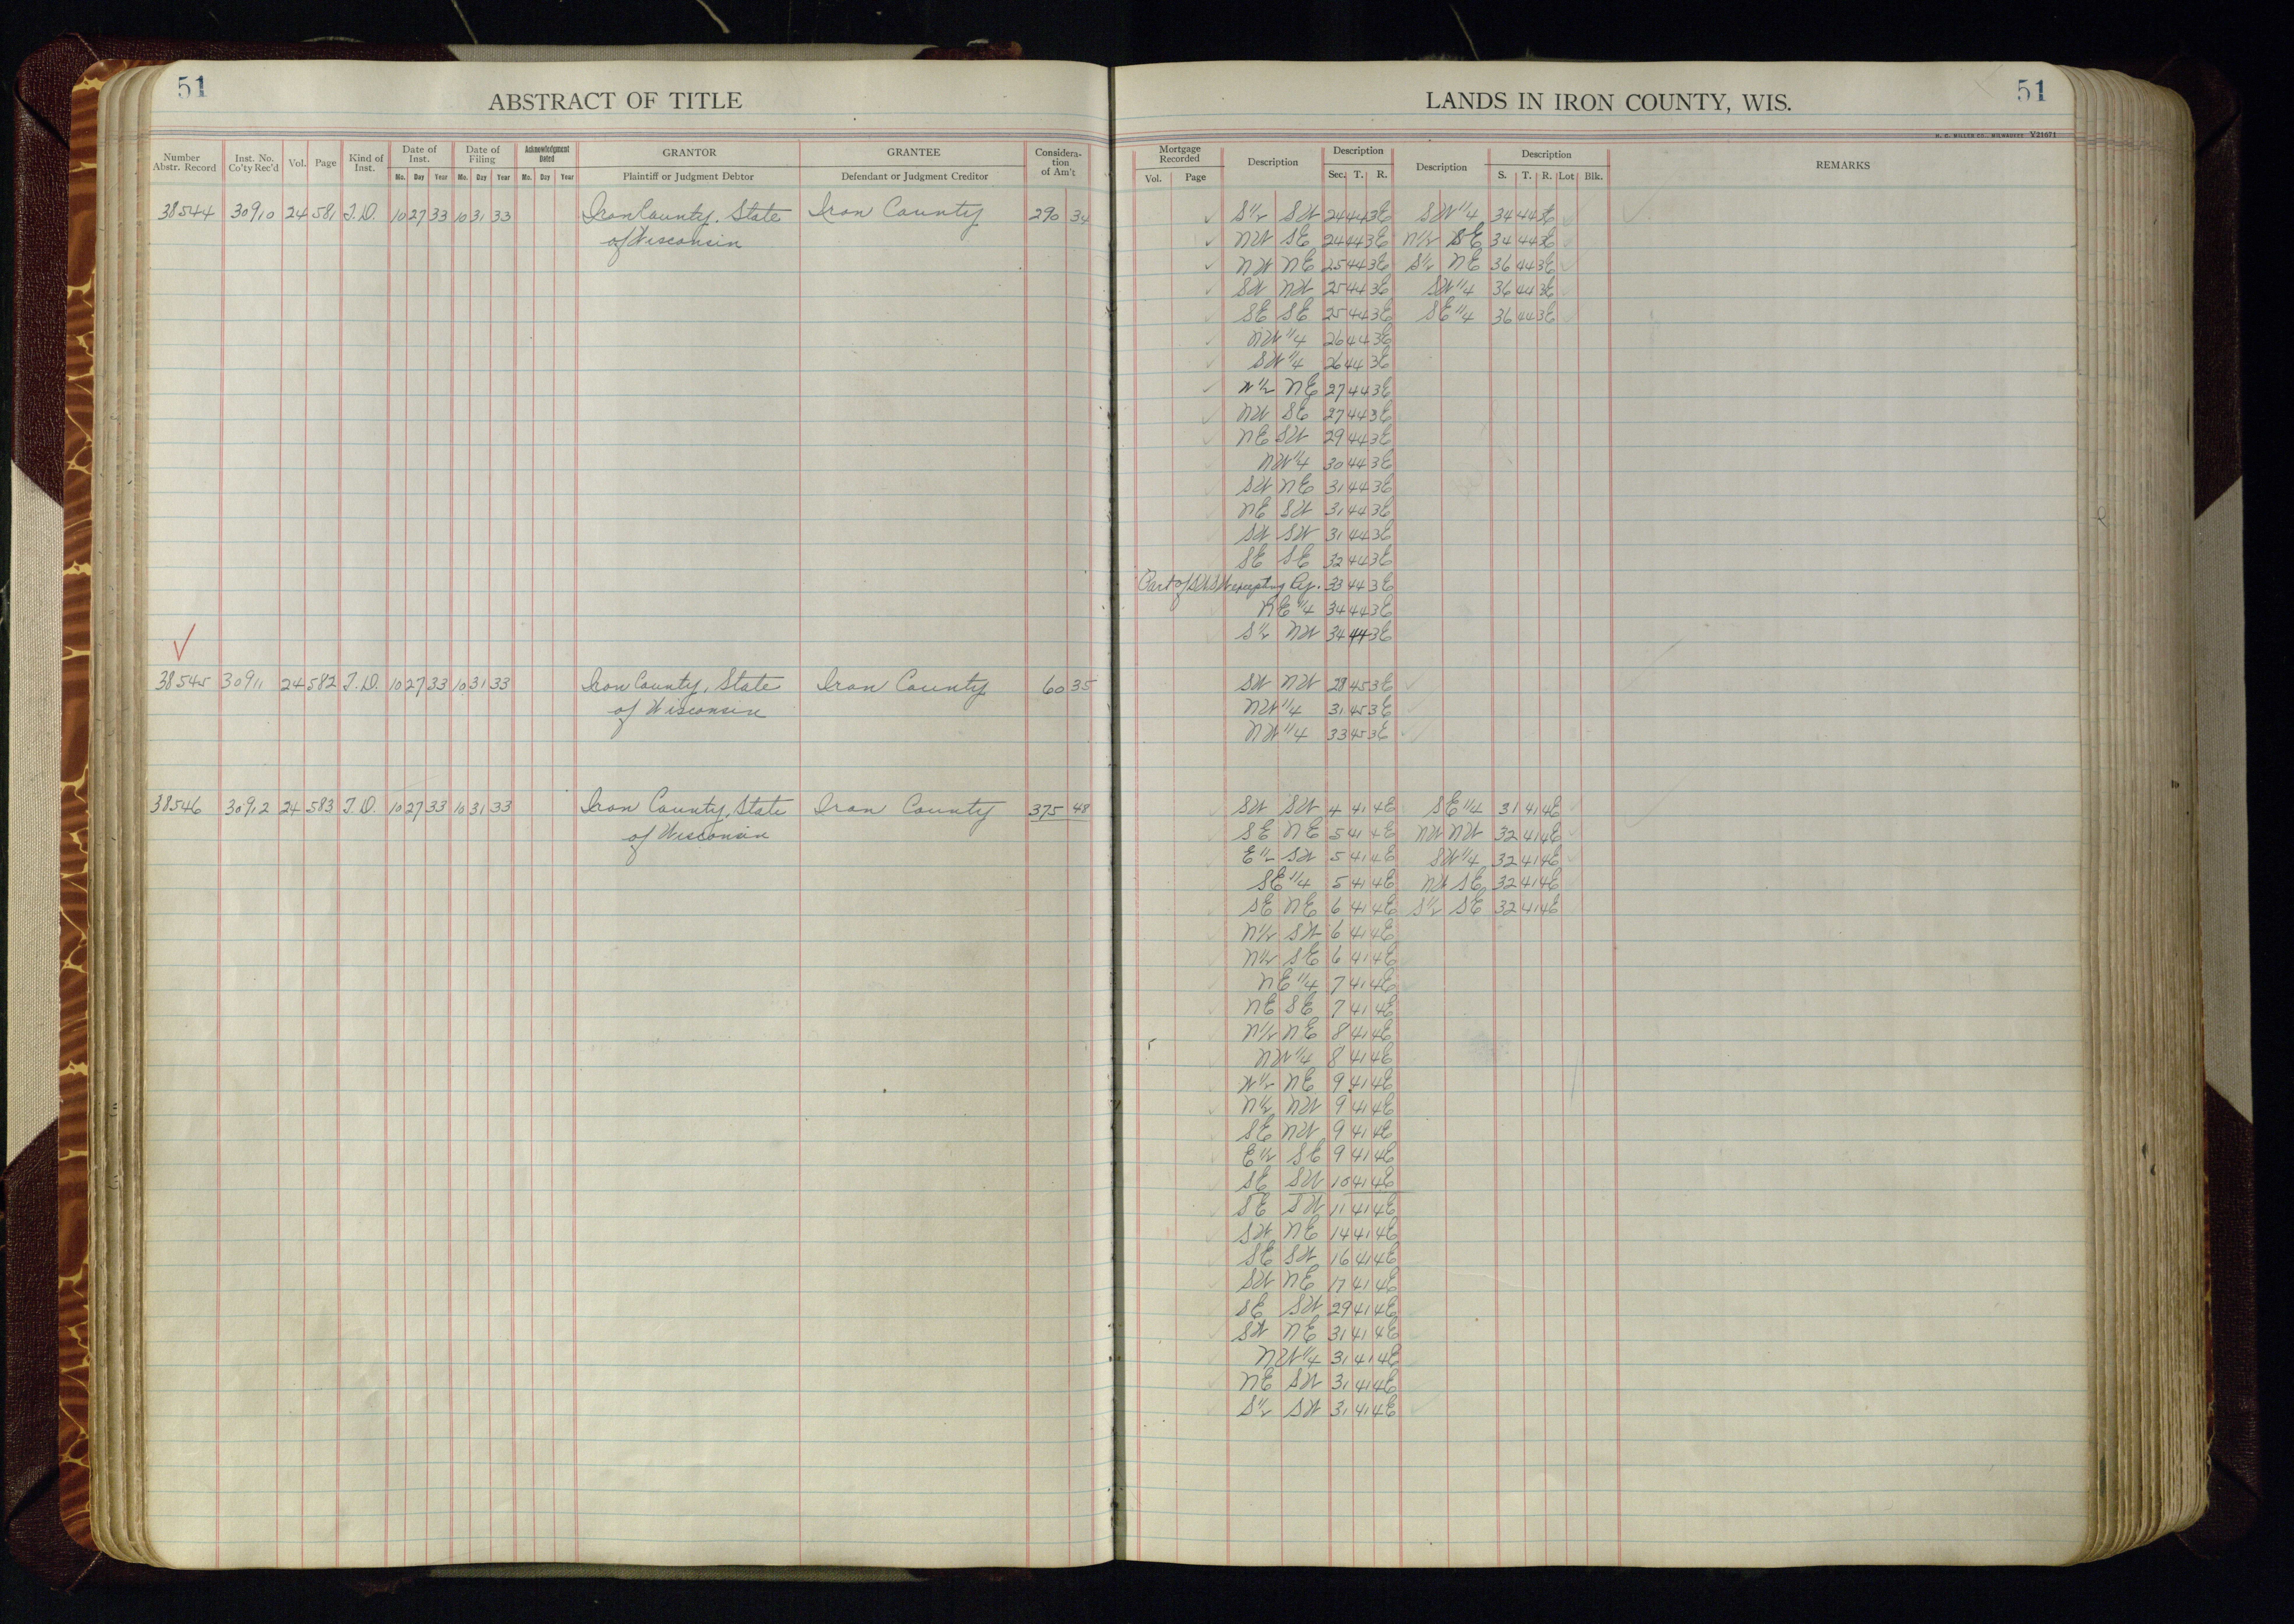 51
ABSTRACT OF TITLE
Number Abstr. Record Inst. No. Co'ty Rec'd Vol. Page Kind of Inst. Date of Inst. Mo. Day Year Date of Filing Mo. Day Year Acknowledgment Dated Mo. Day Year GRANTOR Plaintiff or Judgment Debtor GRANTEE Defendant or Judgment Creditor Considera-tion of Am't
38544 30910 24 581 T.D. 10 27 33 10 31 33 Iron County, State Iron County 290 34
of Wisconsin
38545 30911 24 582 T.D. 10 27 33 10 31 33 Iron County, State Iron County 60 35
of Wisconsin
38546 30912 24 583 T.D. 10 27 33 10 31 33 Iron County, State Iron County 375 48
of Wisconsin
LANDS IN IRON COUNTY, WIS.
51
H. C. MILLER CO., MILWAUKEE Y21671
Mortgage Recorded Vol. Page Description Description Sec. T. R. Description Description S. T. R. Lot Blk. REMARKS
S 1/2 SW 24 44 3E SW 1/4 34 44 3E
NW SE 24 44 3E N 1/2 SE 34 44 3E
NW NE 25 44 3E S 1/2 NE 36 44 3E
SW NW 25 44 3E SW 1/4 36 44 3E
SE SE 25 44 3E SE 1/4 36 44 3E
NW 1/4 26 44 3E
SW 1/4 26 44 3E
W 1/2 NE 27 44 3E
NW SE 27 44 3E
NE SW 29 44 3E
NW 1/4 30 44 3E
SW NE 31 44 3E
NE SW 31 44 3E
SW SW 31 44 3E
SE SE 32 44 3E
Part of SW SW excepting Ry. 33 44 3E
NE 1/4 34 44 3E
S 1/2 NW 34 44 3E
SW NW 28 45 3E
NW 1/4 31 45 3E
NW 1/4 33 45 3E
SW SW 4 41 4E SE 1/4 31 41 4E
SE NE 5 41 4E NW NW 32 41 4E
E 1/2 SW 5 41 4E SW 1/4 32 41 4E
SE 1/4 5 41 4E NW SE 32 41 4E
SE NE 6 41 4E S 1/2 SE 32 41 4E
N 1/2 SW 6 41 4E
N 1/2 SE 6 41 4E
NE 1/4 7 41 4E
NE SE 7 41 4E
N 1/2 NE 8 41 4E
NW 1/4 8 41 4E
W 1/2 NE 9 41 4E
N 1/2 NW 9 41 4E
SE NW 9 41 4E
E 1/2 SE 9 41 4E
SE SW 10 41 4E
SE SW 11 41 4E
SW NE 14 41 4E
SE SW 16 41 4E
SW NE 17 41 4E
SE SW 29 41 4E
SW NE 31 41 4E
NW 1/4 31 41 4E
NE SW 31 41 4E
S 1/2 SW 31 41 4E